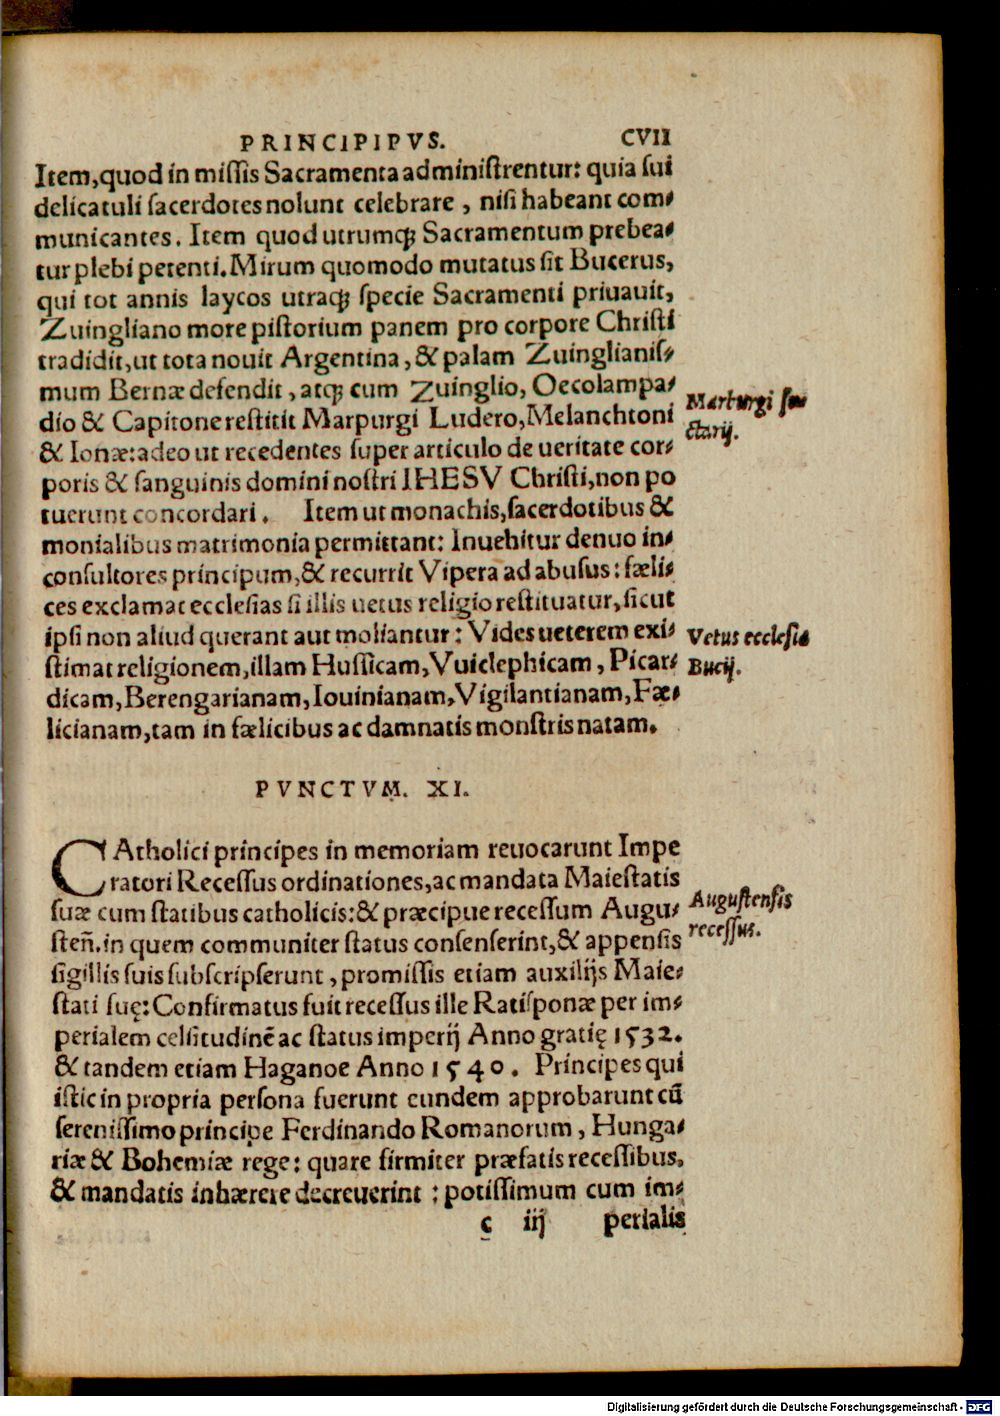 PRINCIPIPVS. CVII
Item,quod in miſſis Sacramenta adminiſtrentur: quia ſui
delicatuli ſacerdotes nolunt celebrare , niſi habeant com⸗
municantes. Item quod utrumq; Sacramentum prebea⸗
tur plebi petenti. Mirum quomodo mutatus ſit Bucerus,
qui tot annis laycos utraq; ſpecie Sacramenti priuauit,
Zuingliano more piſtorium panem pro corpore Chriſti
tradidit,ut tota nouit Argentina, & palam Zuinglianiſ⸗
mum Bernæ defendit , atq; cum Zuinglio, Oecolampa⸗
dio & Capitone reſtitit Marpurgi Ludero, Melanchtoni
& Ionæ: adeo ut recedentes ſuper articulo de ueritate cor⸗
poris & ſanguinis domini noſtri IHESV Chriſti, non po
tuerunt concordari. Item ut monachis, ſacerdotibus &
monialibus matrimonia permittant: Inuehitur denuo in⸗
conſultores principum,& recurrit Vipera ad abuſus: fæli⸗
ces exclamat eccleſias ſi illis uetus religio reſtituatur, ſicut
ipſi non aliud querant aut moliantur: Vides ueterem exi⸗
ſtimat religionem, illam Huſſicam, Vuiclephicam, Picar⸗
dicam, Berengarianam, Iouinianam, Vigilantianam, Fæ⸗
licianam, tam in fælicibus ac damnatis monſtris natam.
Marburgi ſa
ctarij.
Vetus eccleſia
Bucij.
PVNCTVM. XI.
CAtholici principes in memoriam reuocarunt Impe
ratori Receſſus ordinationes, ac mandata Maieſtatis
ſuæ cum ſtatibus catholicis: & præcipue receſſum Augu⸗
ſteñ. in quem communiter ſtatus conſenſerint, & appenſis
ſigillis ſuis ſubſcripſerunt , promiſſis etiam auxilijs Maie⸗
ſtati ſuę: Confirmatus fuit receſſus ille Ratiſponæ per im⸗
perialem celſitudinē ac ſtatus imperij Anno gratię 1532.
& tandem etiam Haganoe Anno 1540. Principes qui
iſtic in propria perſona fuerunt eundem approbarunt cū
ſereniſſimo principe Ferdinando Romanorum, Hunga⸗
riæ & Bohemiæ rege: quare firmiter præfatis receſſibus,
& mandatis inhærere decreuerint : potiſſimum cum im⸗
Auguſtenſis
receſſus.
c iij perialis
Digitalisierung gefördert durch die Deutsche Forschungsgemeinschaft - DFG